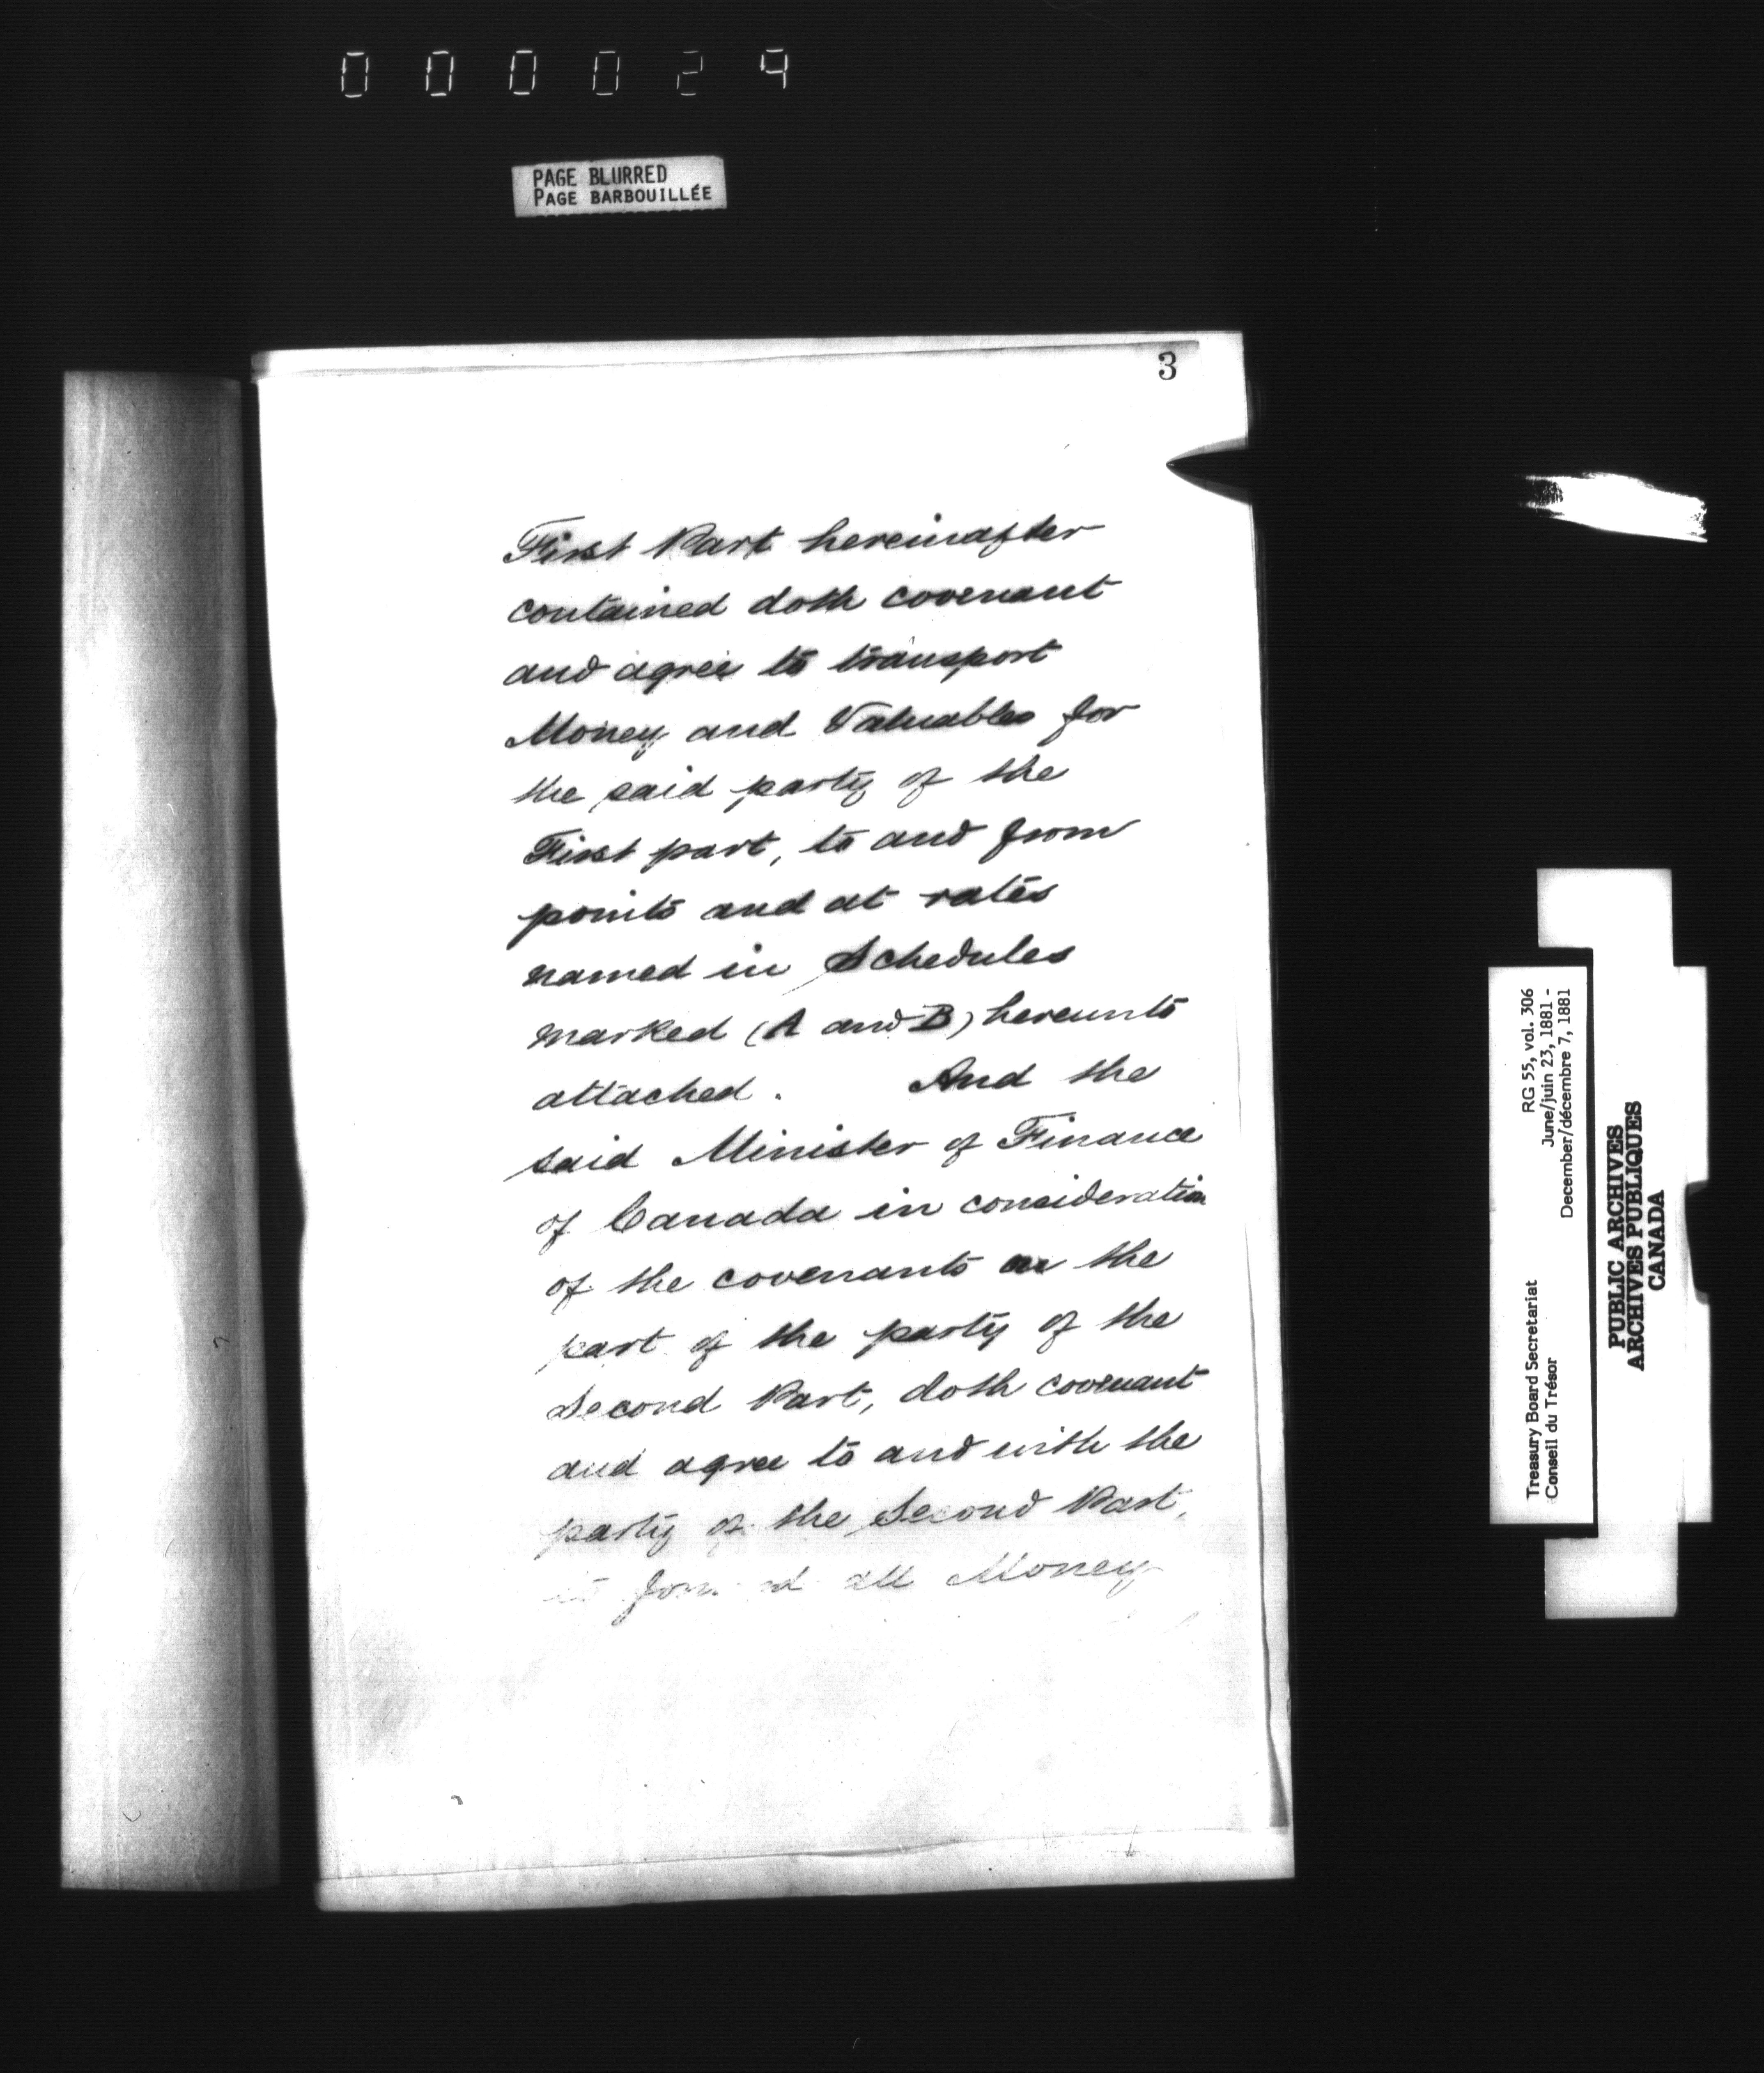 000029
PAGE BLURRED
PAGE BARBOUILLÉE
3
First Part hereinafter
contained doth covenant
and agree to transport
Money and Valuables for
the said party of the
First part, to and from
points and at rates
named in Schedules
marked (A and B) hereunto
attached. And the
said Minister of Finance
of Canada in consideration
of the covenants on the
part of the party of the
Second Part, doth covenant
and agree to and with the
party of the Second Part,
to all Money
RG 55, vol. 306
June/juin 23, 1881 -
December/décembre 7, 1881
Treasury Board Secretariat
Conseil du Trésor
PUBLIC ARCHIVES
ARCHIVES PUBLIQUES
CANADA